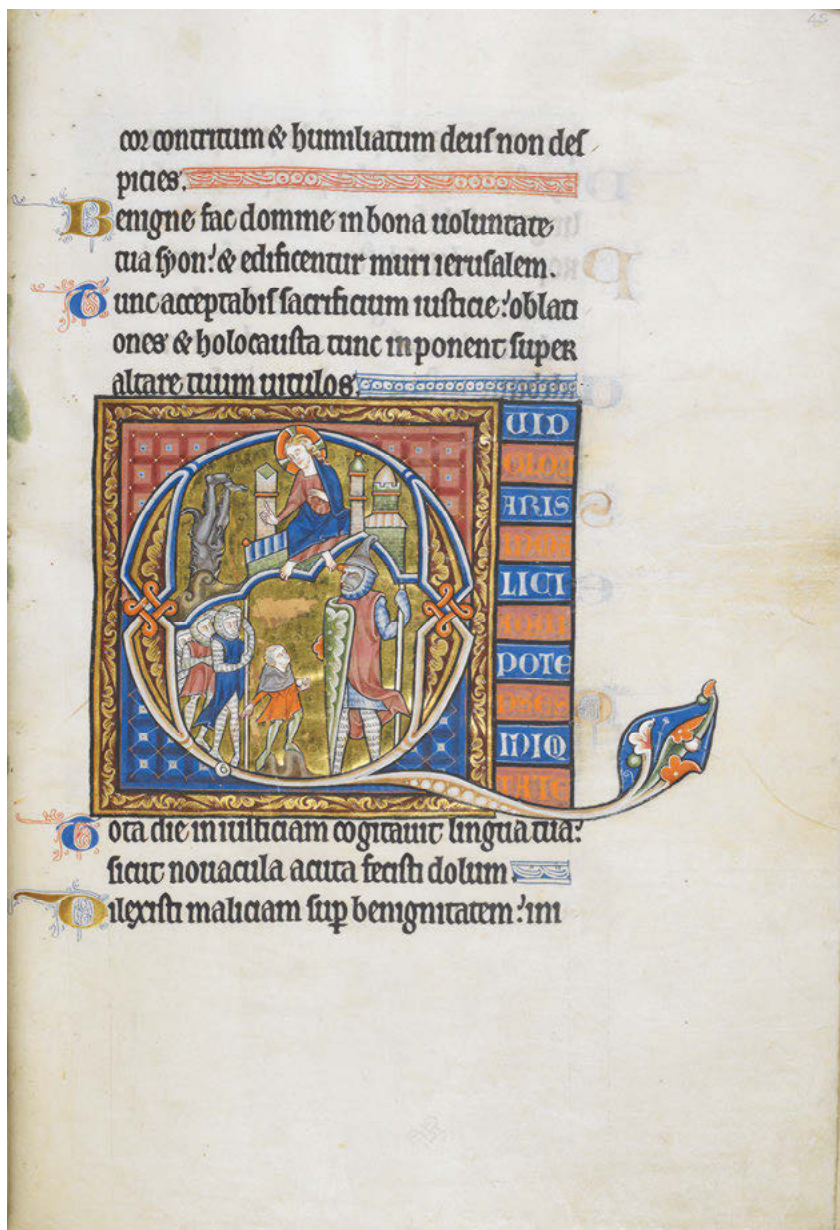 45
cor contritum & humiliatum deus non des
picies.
Benigne fac domine in bona uoluntate
tua syon: & edificentur muri ierusalem.
Tunc acceptabis sacrificium iusticie: oblati
ones & holocausta tunc inponent super
altare tuum uitulos.
QUID
GLORI
ARIS
INMA
LICI
POTE
INIQ
TATE
Tota die iniusticiam cogitauit lingua tua:
sicut nouacula acuta fecisti dolum.
Dilexisti maliciam sup benignitatem: ini